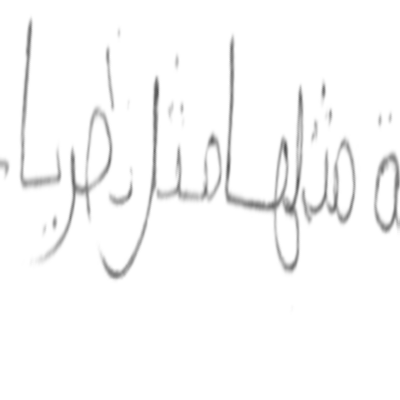 ة مثلها مثل نظريا